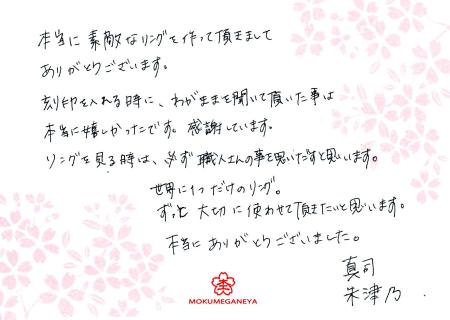 本当に 素敵なリングを作って頂きまして
ありがとうございます。
刻印を入れる時に、わがままを聞いて頂いた事は
本当に嬉しかったです。感謝しています。
リングを見る時は、必ず 職人さんの事を思いだすと思います。
世界に1つだけのリング。
ずっと 大切に使わせて頂きたいと思います。
本当にありがとうございました。
真司
朱津乃
MOKUMEGANEYA